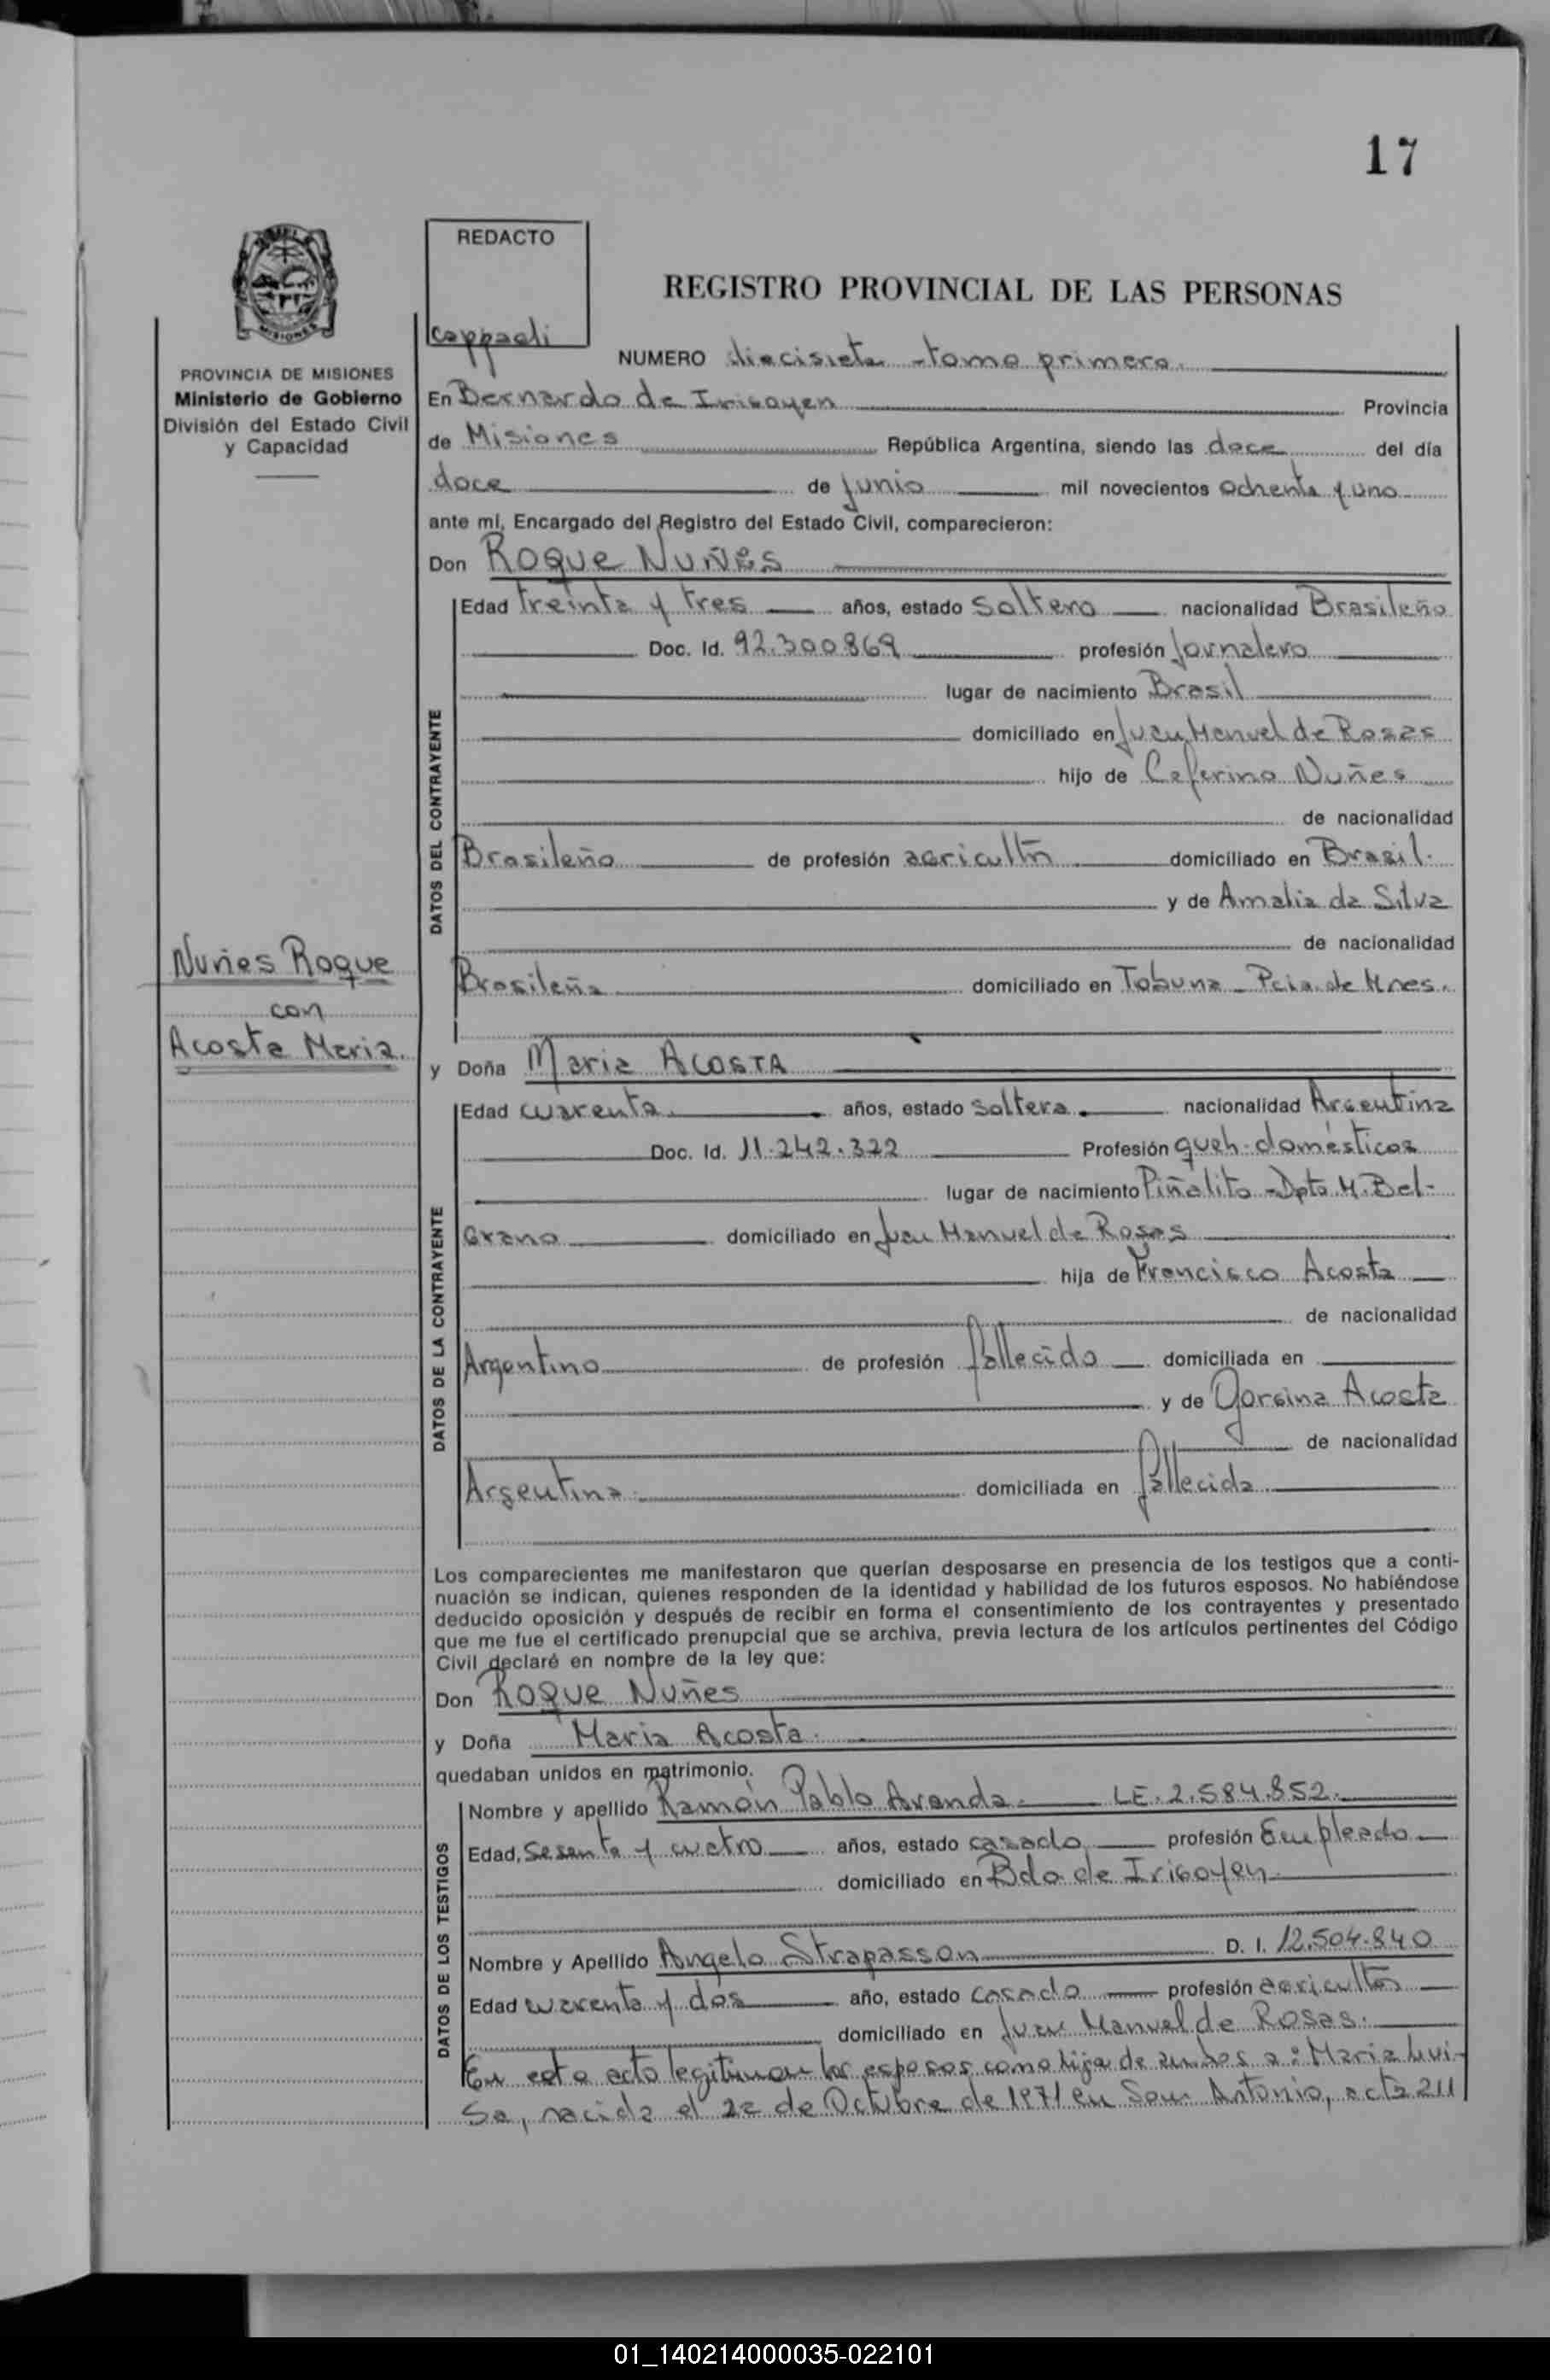 17
REDACTO
REGISTRO PROVINCIAL DE LAS PERSONAS
MISIONES
PROVINCIA DE MISIONES
Ministerio de Gobierno
División del Estado Civil
y Capacidad
NUMERO diecisiete - tomo primero.
En Bernardo de Irigoyen Provincia
de Misiones República Argentina, siendo las doce del día
doce de junio mil novecientos ochenta y uno
ante mí, Encargado del Registro del Estado Civil, comparecieron:
Don Roque NUÑES
DATOS DEL CONTRAYENTE
Edad treinta y tres años, estado soltero nacionalidad Brasileño
Doc. Id. 92.300.869 profesión jornalero
lugar de nacimiento Brasil
domiciliado en Juan Manuel de Rosas
hijo de Ceferino Nuñes
de nacionalidad
Brasileño de profesión agricultr domiciliado en Brasil.
y de Amalia da Silva
de nacionalidad
Brasileña domiciliado en Tobuna - Pcia. de Mnes.
Nuñes Roque
con
Acosta Maria.
y Doña Maria ACOSTA
DATOS DE LA CONTRAYENTE
Edad cuarenta años, estado soltera nacionalidad Argentina
Doc. Id. 11.242.322 Profesión queh. domésticos
lugar de nacimiento Piñalito - Dpto M. Bel-
grano domiciliado en Juan Manuel de Rosas
hija de Francisco Acosta
de nacionalidad
Argentino de profesión fallecido domiciliada en
y de Acosta
de nacionalidad
Argentina domiciliada en fallecida
Los comparecientes me manifestaron que querían desposarse en presencia de los testigos que a conti-
nuación se indican, quienes responden de la identidad y habilidad de los futuros esposos. No habiéndose
deducido oposición y después de recibir en forma el consentimiento de los contrayentes y presentado
que me fue el certificado prenupcial que se archiva, previa lectura de los artículos pertinentes del Código
Civil declaré en nombre de la ley que:
Don Roque Nuñes
y Doña Maria Acosta.
quedaban unidos en matrimonio.
DATOS DE LOS TESTIGOS
Nombre y apellido Ramón Pablo Aranda. LE. 2.584.852.
Edad, sesenta y cuatro años, estado casado profesión Empleado
domiciliado en Bdo de Irigoyen
Nombre y Apellido Angelo Strapasson D. I. 12.504.840
Edad cuarenta y dos año, estado casado profesión agricultor
domiciliado en Juan Manuel de Rosas.
En este acto legitiman los esposos como hija de ambos a: Maria Lui-
sa, nacida el 22 de Octubre de 1971 en San Antonio, acta 211
01_140214000035-022101